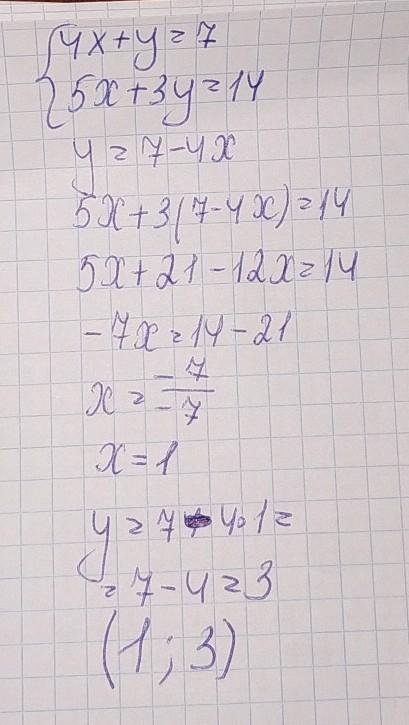 {4x+y=7
5x+3y=14
y=7-4x
5x+3(7-4x)=14
5x+21-12x=14
-7x=14-21
x=-7/-7
x=1
y=7-4·1=
=7-4=3
(1;3)